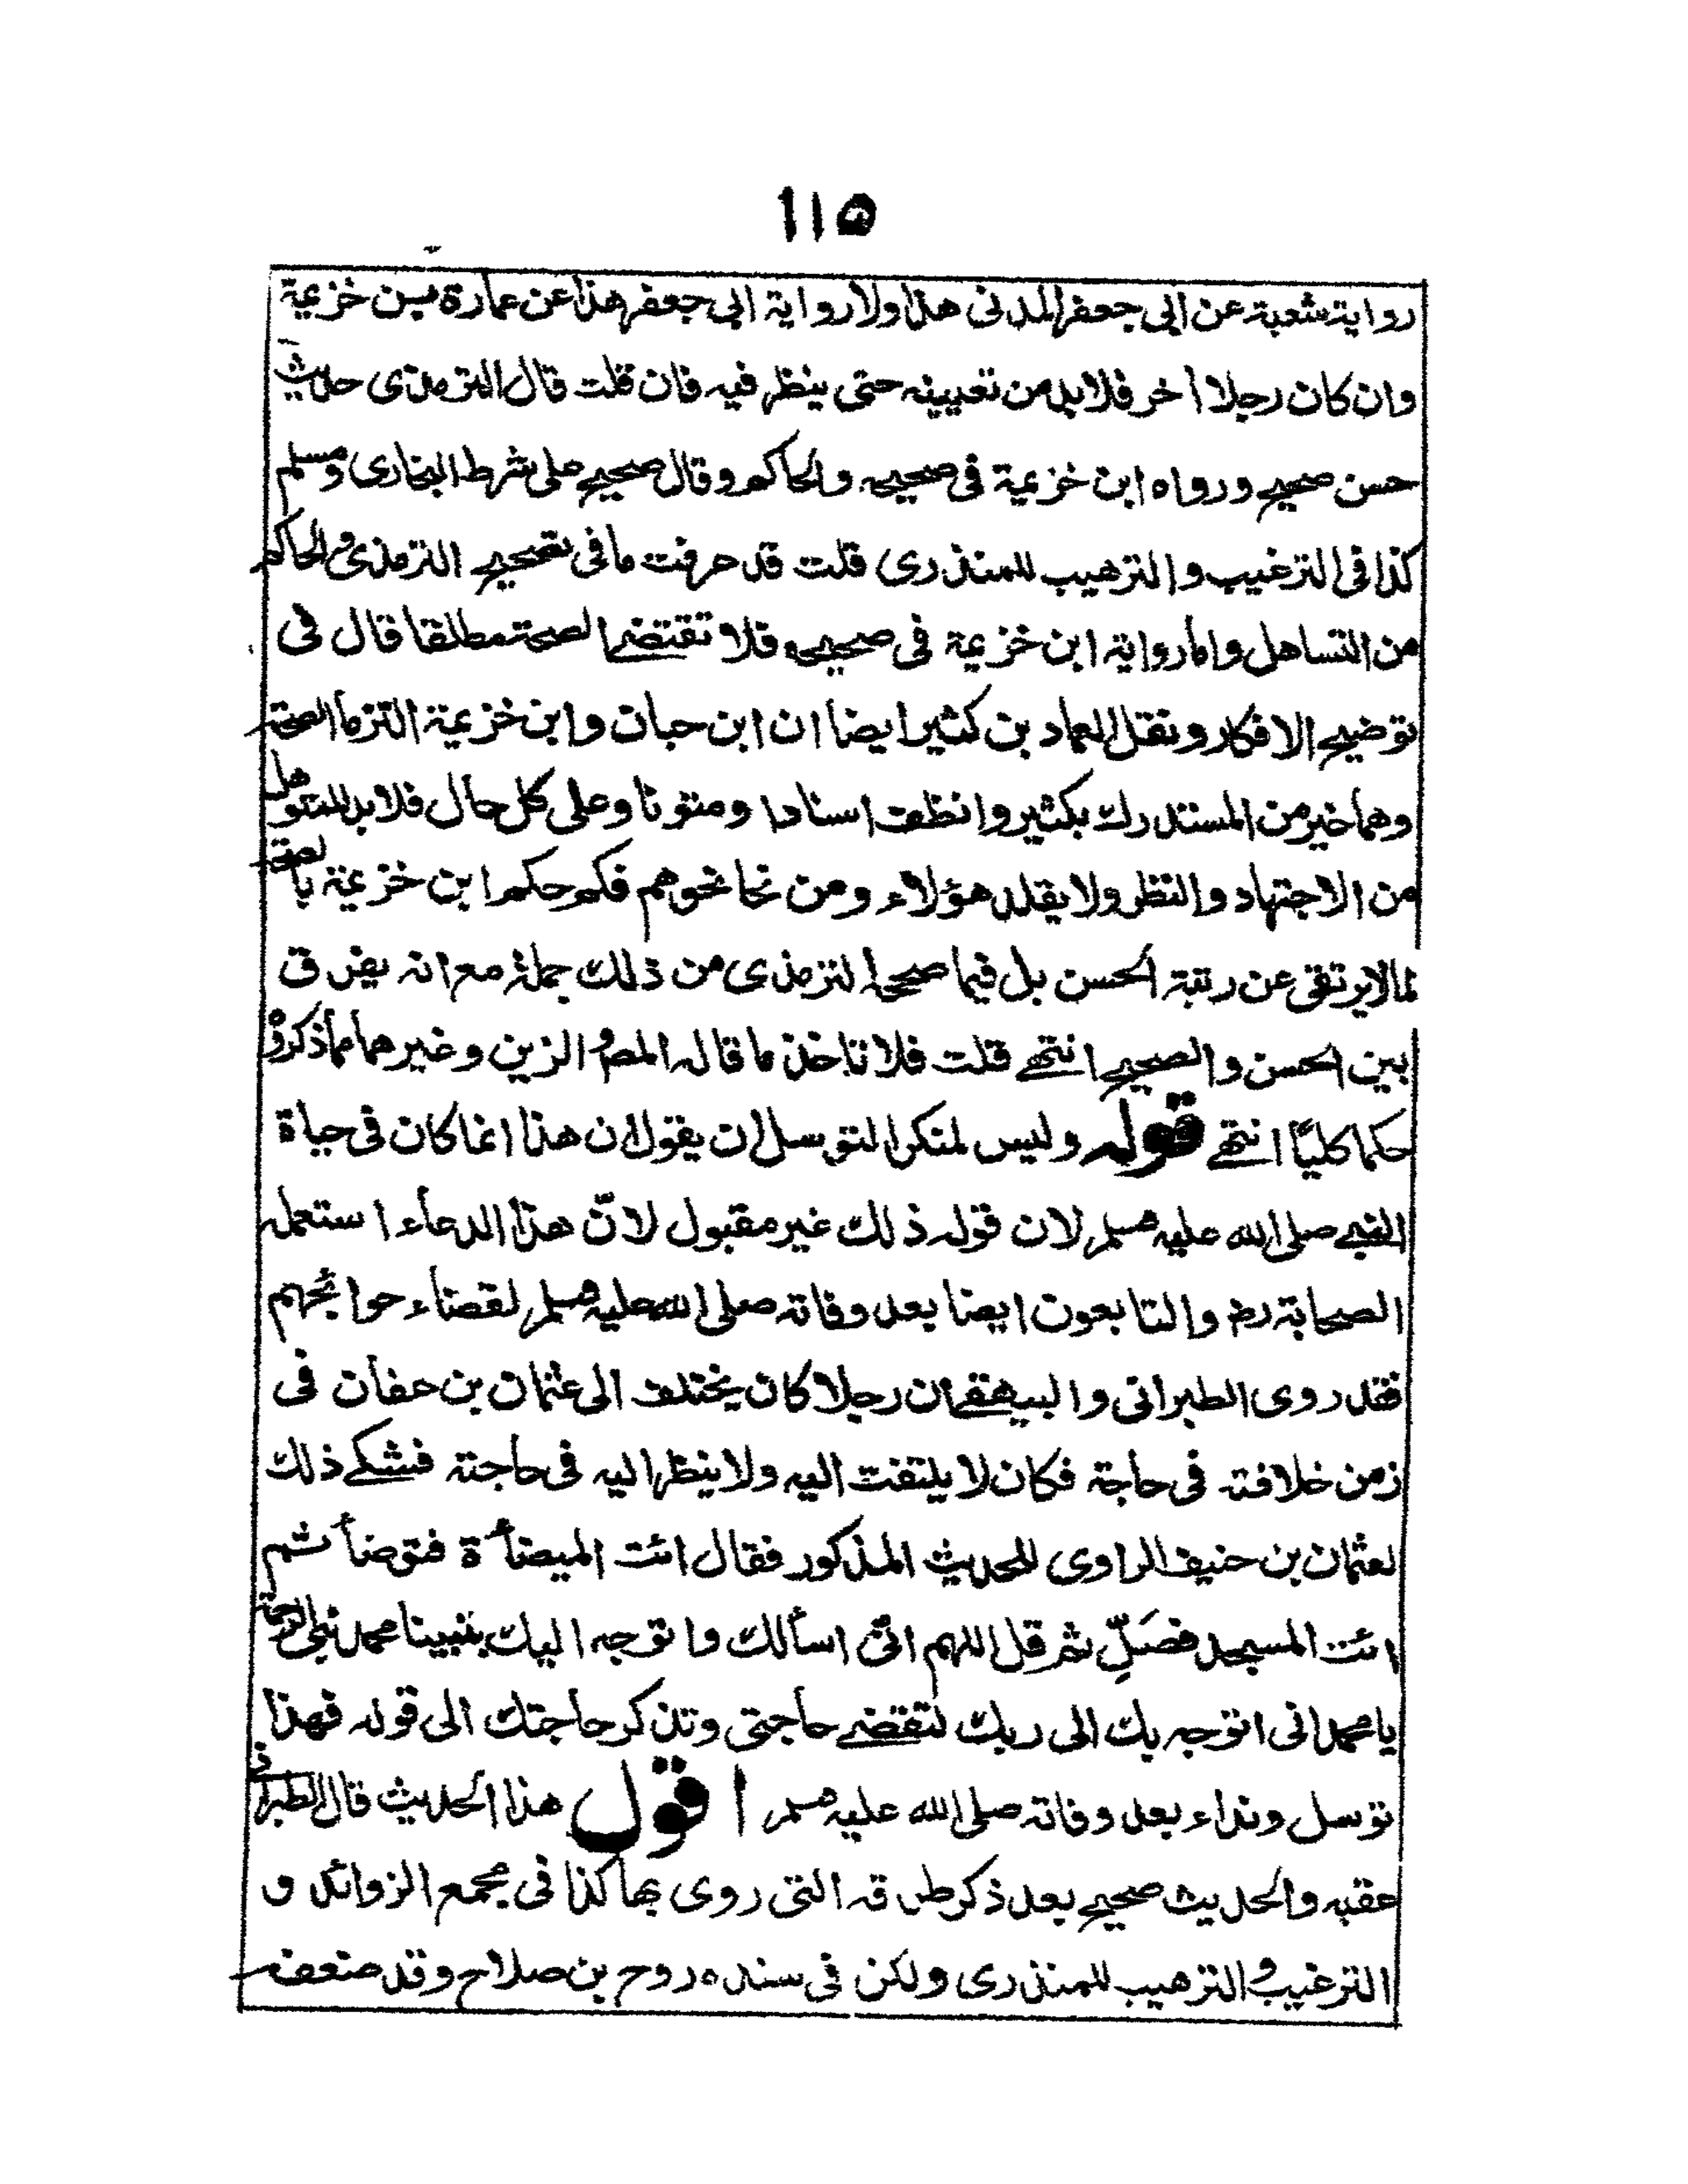 ١١٥
رواية شعبة عن ابى جعفر المدنى هذا ولا رواية ابى جعفر هذا عن عمارة بن خزيمة
وان كان رجلا أخر فلا بد من تعيينه حتى ينظر فيه فان قلت قال الترمذى حديث
حسن صحيح ورواه ابن خزيمة فى صحيحه والحاكم وقال صحيح على شرط البخارى ومسلم
كذا فى الترغيب والترهيب للمنذرى قلت قد عرفت ما فى تصحيح الترمذى والحاكم
من التساهل واما رواية ابن خزيمة فى صحيحه فلا تقتضى الصحة مطلقا قال فى
توضيح الافكار ونقل العماد بن كثير ايضا ان ابن حبان وابن خزيمة التزما الصحة
وهما خير من المستدرك بكثير وانظف اسنادا ومتونا وعلى كل حال فلا بد للمتوهل
من الاجتهاد والنظر ولا يقلد هؤلاء ومن نحا نحوهم فكم حكم ابن خزيمة بالصحة
لما لا يرتقى عن رتبة الحسن بل فيما صححه الترمذى من ذلك جملة مع انه يفرق
بين الحسن والصحيح انتهى قلت فلا تاخذ ما قاله المصو الزين وغيرهما مما ذكروه
حكما كليّا انتهى قوله وليس لمنكر التوسل ان يقول ان هذا انما كان فى حياة
النبى صلى الله عليه وسلم لان قوله ذلك غير مقبول لانّ هذا الدعاء استعمله
الصحابة رض والتابعون ايضا بعد وفاته صلى الله عليه وسلم لقضاء حوائجهم
فقد روى الطبرانى والبيهقى ان رجلا كان يختلف الى عثمان بن عفان فى
زمن خلافته فى حاجة فكان لا يلتفت اليه ولا ينظر اليه فى حاجته فشكى ذلك
لعثمان بن حنيف الراوى للحديث المذكور فقال ائت الميضأة فتوضأ ثم
ائت المسجد فصَلِّ ثم قل اللهم انى اسألك واتوجه اليك بنبينا محمد نبى الرحمة
يا محمد انى اتوجه بك الى ربك لتقضى حاجتى وتذكر حاجتك الى قوله فهذا
توسل ونداء بعد وفاته صلى الله عليه وسلم اقول هذا الحديث قال الطبرانى
عقبه والحديث صحيح بعد ذكر طرقه التى روى بها كذا فى مجمع الزوائد و
الترغيب والترهيب للمنذرى ولكن فى سنده روح بن صلاح وقد ضعفه